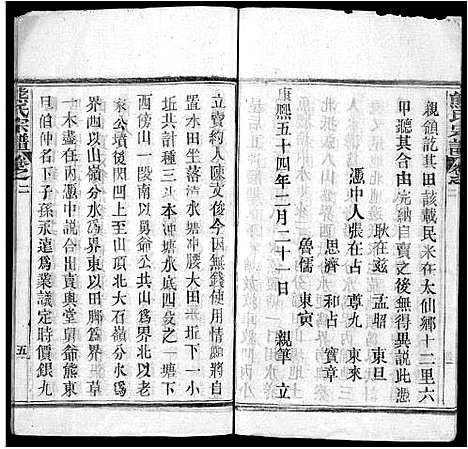 熊氏宗譜 卷之二
親領訖其田該載民米在太仙鄉十二里六
甲聽其合由完納自賣之後無得異說此憑
耿在廷 孟昭 東旦
憑中人張在占 尊九 東來
思濟 和占 寳章
魯儒 東寅
康熙五十四年二月二十一日 親筆 立
立賣約人陳文俊今因無錢使用情願將自
置水田坐落清水塘冲腰大田一坵下一小
坵共計種三斗本冲塘水底四炱之一塘下
西傍山一段南以舅爺公共山爲界北以老
家公墳後凹凹上至山頂北大石嶺分水爲
界西以山嶺分水爲界東以田脚爲界草木
一並在內憑中說合出賣與堂舅爺熊東
甲伯仲名下子孫永遠爲業議定時價銀九
熊氏宗譜 卷之二
五